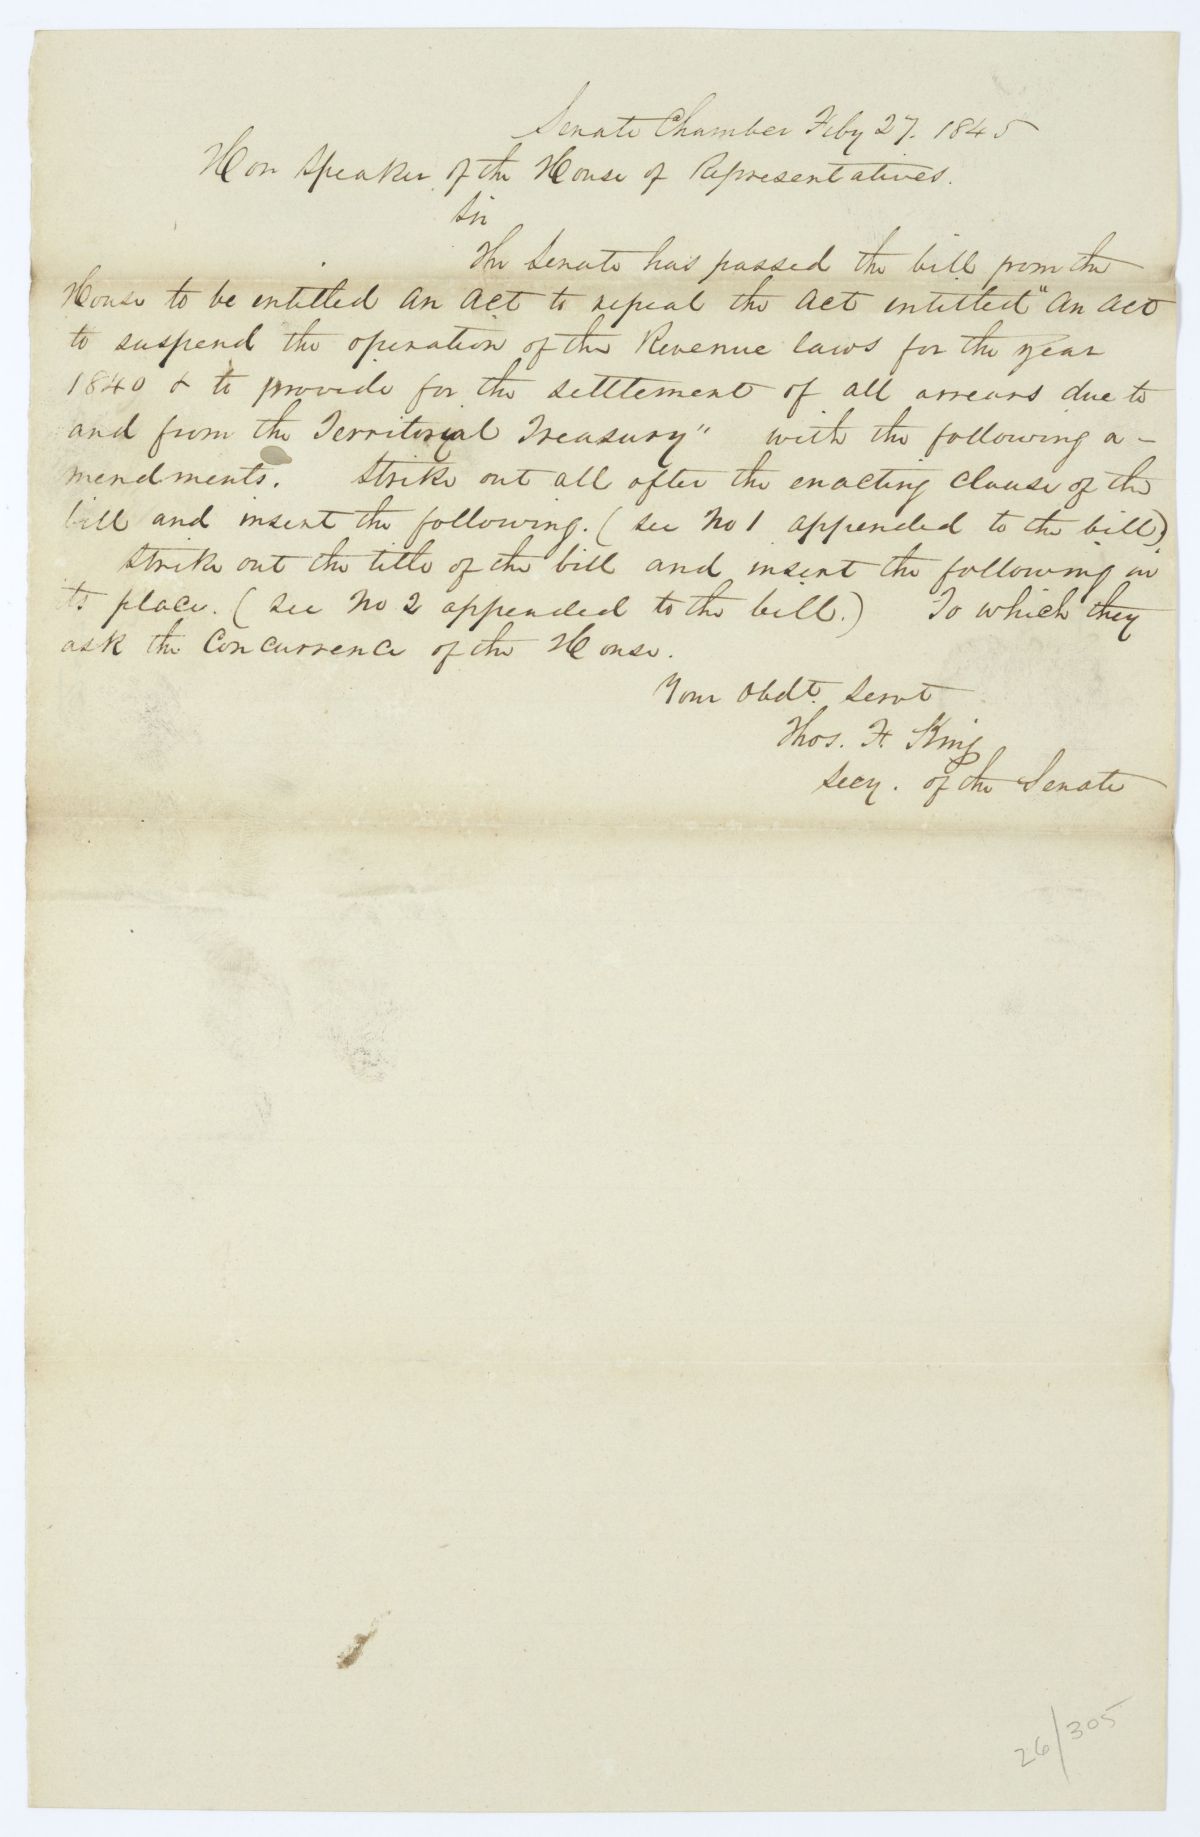 Senate Chamber Feby 27. 1845
Hon Speaker of the House of Representatives.
Sir
The Senate has passed the bill from the
House to be entitled an act to repeal the act entitled "An act
to suspend the operation of the Revenue laws for the year
1840 & to provide for the settlement of all arrears due to
and from the Territorial Treasury" with the following a-
mendments. Strike out all after the enacting clause of the
bill and insert the following. (see No 1 appended to the bill)
Strike out the title of the bill and insert the following in
its place. (see No 2 appended to the bill.) To which they
ask the concurrence of the House.
Your Obdt. Servt
Thos. F. King
Secy. of the Senate
26/305